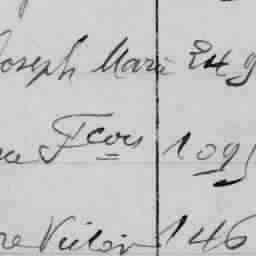 Joseph Marie 249
Fcois 109
re Victor 146